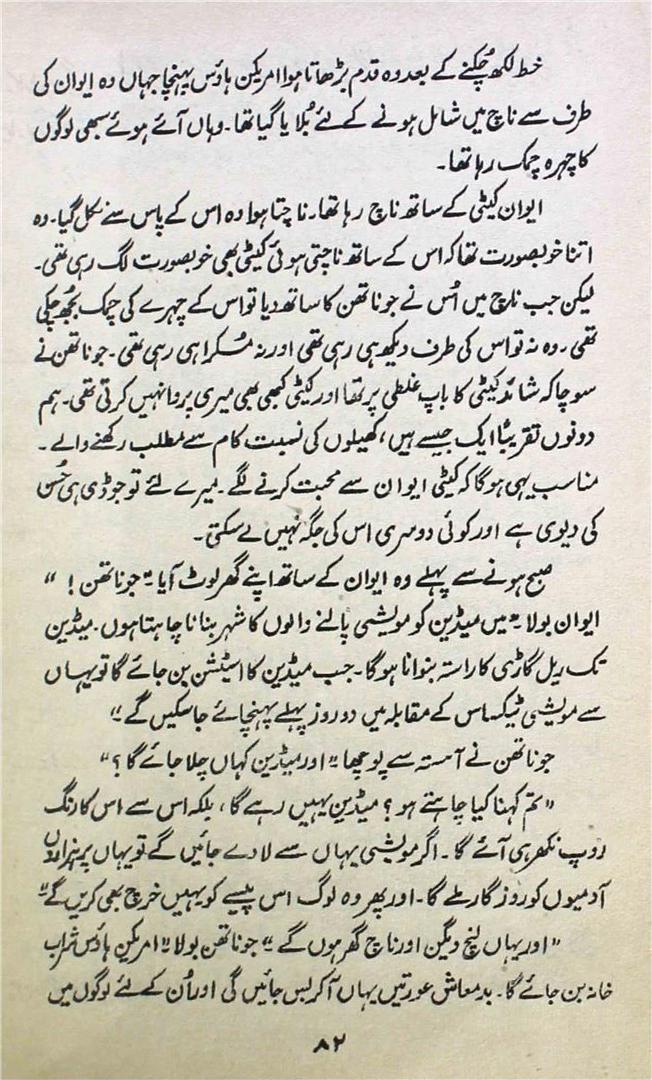 خط لکھ چُکنے کے بعد وہ قدم بڑھاتا ہوا امریکن ہاؤس پہنچا جہاں وہ ایوان کی
طرف سے ناچ میں شامل ہونے کے لئے بُلایا گیا تھا۔ وہاں آئے ہوئے سبھی لوگوں
کا چہرہ چمک رہا تھا۔
ایوان کیٹی کے ساتھ ناچ رہا تھا۔ ناچتا ہوا وہ اس کے پاس سے نکل گیا۔ وہ
اتنا خوبصورت تھا کہ اس کے ساتھ ناچتی ہوئی کیٹی بھی خوبصورت لگ رہی تھی۔
لیکن جب ناچ میں اُس نے جوناتھن کا ساتھ دیا تو اس کے چہرے کی چمک بُجھ چکی
تھی۔ وہ نہ تو اس کی طرف دیکھ ہی رہی تھی اور نہ مُسکرا ہی رہی تھی۔ جوناتھن نے
سوچا کہ شائد کیٹی کا باپ غلطی پر تھا اور کیٹی کبھی بھی میری پروا نہیں کرتی تھی۔ ہم
دونوں تقریباً ایک جیسے ہیں، کھیلوں کی نسبت کام سے مطلب رکھنے والے۔
مناسب یہی ہوگا کہ کیٹی ایوان سے محبت کرنے لگے۔ میرے لئے تو جوڈی ہی حُسن
کی دیوی ہے اور کوئی دوسری اس کی جگہ نہیں لے سکتی۔
صبح ہونے سے پہلے وہ ایوان کے ساتھ اپنے گھر لوٹ آیا "جوناتھن! "
ایوان بولا "میں میڈین کو مویشی پالنے والوں کا شہر بنانا چاہتا ہوں۔ میڈین
تک ریل گاڑی کا راستہ بنوانا ہوگا۔ جب میڈین کا اسٹیشن بن جائے گا تو یہاں
سے مویشی ٹیکساس کے مقابلہ میں دو روز پہلے پہنچائے جا سکیں گے"
جوناتھن نے آہستہ سے پوچھا "اور میڈین کہاں چلا جائے گا؟"
"تم کہنا کیا چاہتے ہو؟ میڈین یہیں رہے گا، بلکہ اس سے اس کا رنگ
روپ نکھر ہی آئے گا۔ اگر مویشی یہاں سے لادے جائیں گے تو یہاں پر ہزاروں
آدمیوں کو روزگار ملے گا۔ اور پھر وہ لوگ اس پیسے کو یہیں خرچ بھی کریں گے"
"اور یہاں لنچ ویگن اور ناچ گھر ہوں گے" جوناتھن بولا "امریکن ہاؤس شراب
خانہ بن جائے گا۔ بدمعاش عورتیں یہاں آ کر بس جائیں گی اور اُن کے لئے لوگوں میں
۸۲